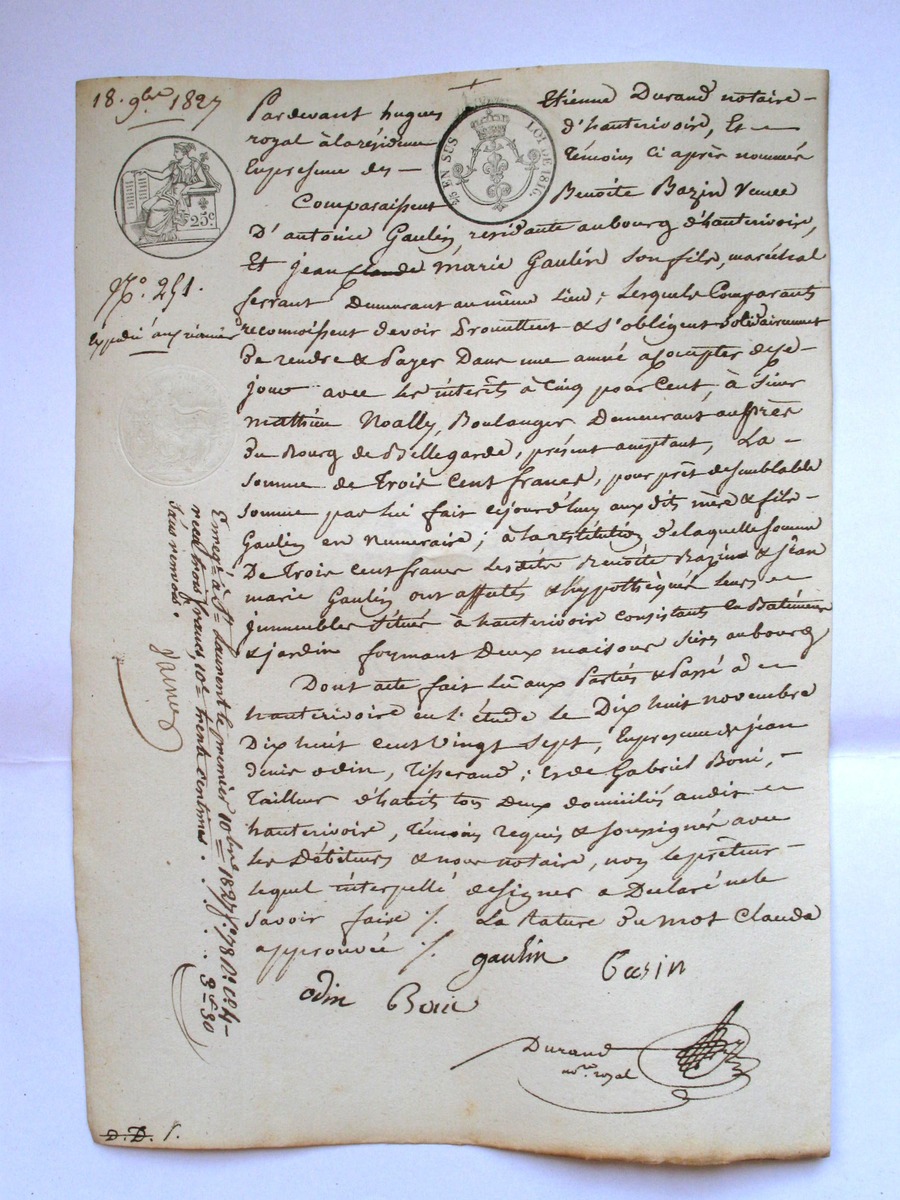 18. 9bre 1827
Pardevant hugues Etienne Durand notaire
royal à la résidence d'hauterivoire, Et
En presence des Témoins Ci après nommés
Comparaissent Benoite Bazin Veuve
D'antoine Gaulin, residante au bourg d'hauterivoire,
Et jean claude marie Gaulin son fils, maréchal
ferrant Demeurant au même Lieu; Lesquels Comparants
reconnoissent devoir Promettent & s'obligent Solidairement
De rendre & Payer Dans une année a compter de ce
jour avec les interets à Cinq pour Cent, à Sieur
mathieu Noally, Boulanger Demeurant auprès
du Bourg de Bellegarde, présent acceptant, La
Somme de Trois Cent francs, pour prêt de semblable
somme par lui fait cejourd'huy auxdits mère & fils
Gaulin en numeraire; à la restitution de laquelle somme
De Trois cent francs Lesdits Benoite Bazin & jean
marie Gaulin ont affectés & hypothéqués leurs
jmmeubles Situés à hauterivoire consistants en Batiments
& jardin formant Deux maisons Sises au bourg
Dont acte fait Lu aux Parties & Passé à
hauterivoire en l'étude le Dix huit novembre
Dix huit cent Vingt Sept, En presence de jean
denis odin, Tisserand; Et de Gabriel Boni,
Tailleur d'habits tous Deux domiciliés audit
hauterivoire, Témoins requis & soussignés avec
les Débiteurs & nous notaire, non le prêteur
lequel interpellé de signer a Declaré ne le
savoir faire ./. La rature du mot Claude
approuvée ./.
gaulin
Basin
odin
Boni
Durand
nore royal
25c
EN SUS
LOI DE 1816.
No. 251.
Expedié
Enregé à St Laurent le premier 10bre 1827
reçu trois francs, 10e trente centimes.
Sans renvois.
3f 30
D. D. 1.